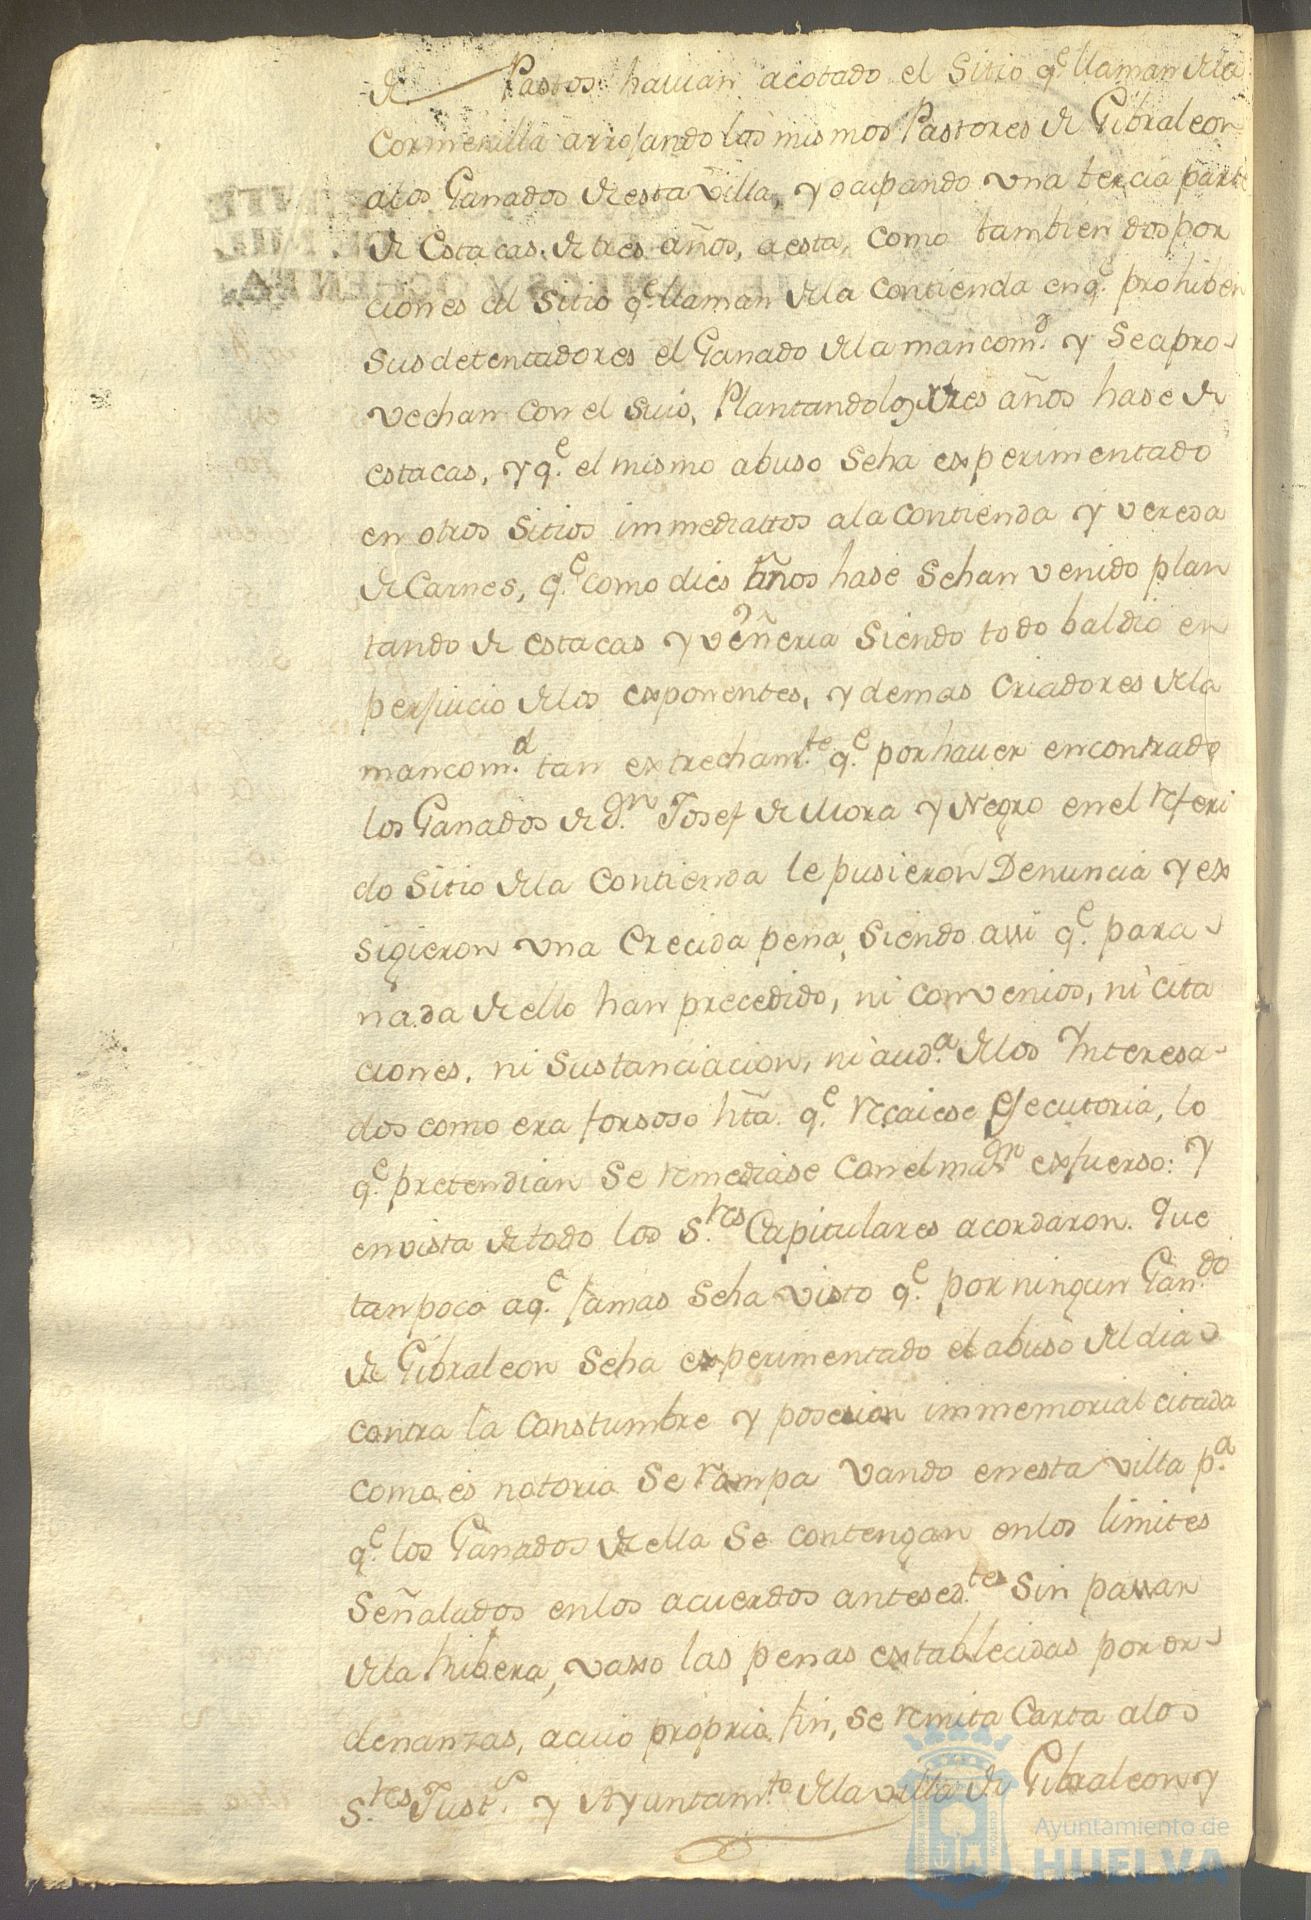 de Pastos havian acotado el Sitio q.e llaman dela
Cormenilla arrojando los mismos Pastores de Gibraleon
alos Ganados de esta villa, y ocupando una tercia parte
de Estacas de tres años, a esta, como tambien dos por
ciones al Sitio q.e llaman dela Contienda en q.e prohiben
sus detentadores el Ganado dela mancom.d y se apro-
vechan con el suio, Plantandolo tres años hase de
estacas, y q.e el mismo abuso seha experimentado
en otros Sitios immediattos ala Contienda y vereda
de Carnes, q.e como dies años hase sehan venido plan
tando de estacas y veñeria siendo todo baldio en
perjuicio delos exponentes, y demas Criadores dela
mancom.d tan extrecham.te q.e por haver encontrado
los Ganados de d.n Josef de Mora y Negro en el referi
do Sitio dela Contienda le pusieron Denuncia y ex
sigieron una Crecida pena, siendo assi q.e para
nada de ello han precedido, ni convenios, ni cita
ciones, ni sustanciacion, ni aud.a delos Interesa-
dos como era forsoso hta. q.e recaiese ejecutoria, lo
q.e pretendian se remediase con el ma.or exfuerso: Y
en vista de todo los S.res Capitulares acordaron. Que
tanpoco aq.e jamas seha visto q.e por ningun Gan.do
de Gibraleon seha experimentado el abuso del dia
contra la Constumbre y posesion immemorial citada
como es notorio se rompa vando en esta villa p.a
q.e los Ganados de ella se contengan en los limites
señalados en los acuerdos antesed.tes sin passar
dela Ribera, vaxo las penas extablecidas por or-
denanzas, acuio proprio fin, se remita Carta alos
S.res Just.s y Ayuntam.to dela villa de Gibraleon y
Ayuntamiento de
HUELVA